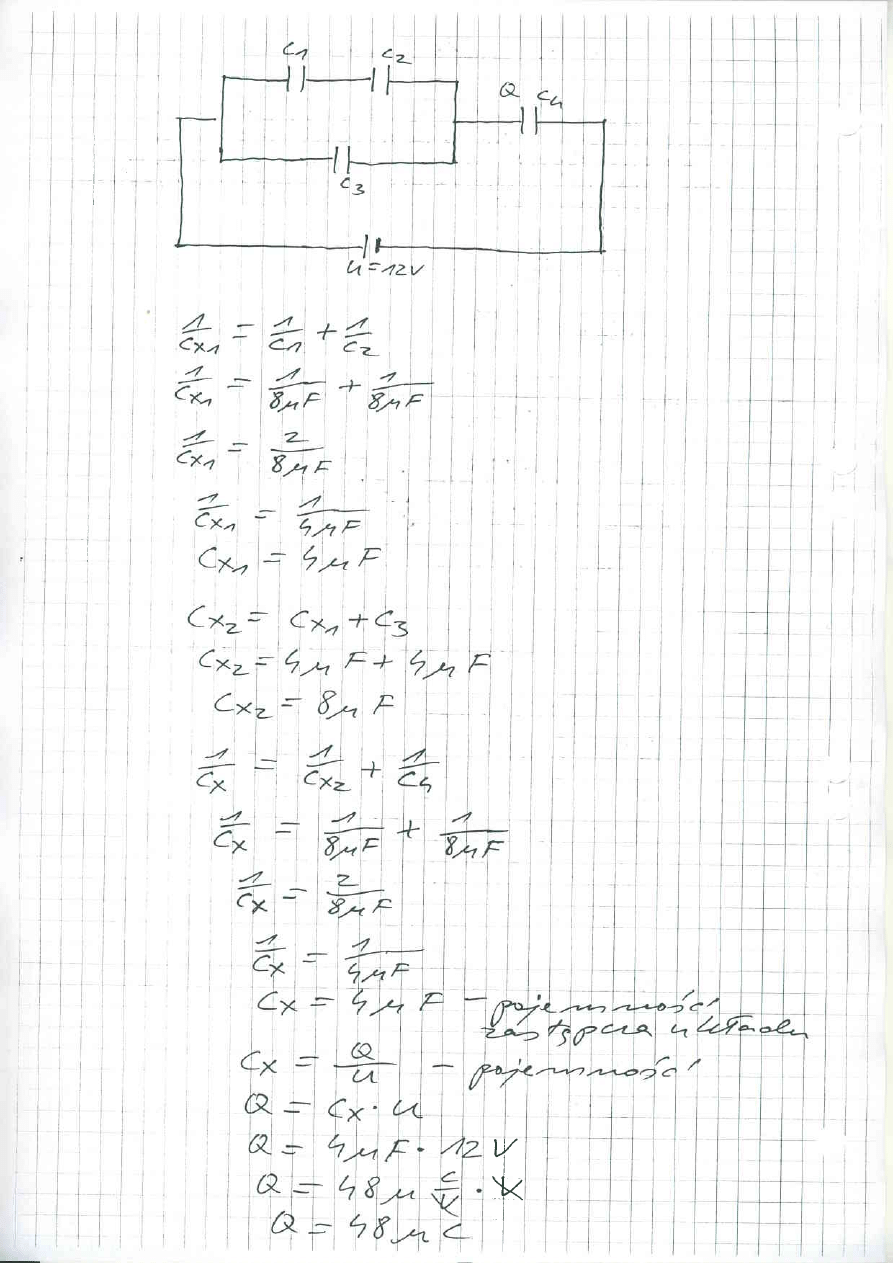 C1 C2
Q C4
C3
U=12V
1/Cx1 = 1/C1 + 1/C2
1/Cx1 = 1/8μF + 1/8μF
1/Cx1 = 2/8μF
1/Cx1 = 1/4μF
Cx1 = 4μF
Cx2 = Cx1 + C3
Cx2 = 4μF + 4μF
Cx2 = 8μF
1/Cx = 1/Cx2 + 1/C4
1/Cx = 1/8μF + 1/8μF
1/Cx = 2/8μF
1/Cx = 1/4μF
Cx = 4μF – pojemność
zastępcza układu
Cx = Q/U – pojemność
Q = Cx · U
Q = 4μF · 12V
Q = 48μ C/V · V
Q = 48μC